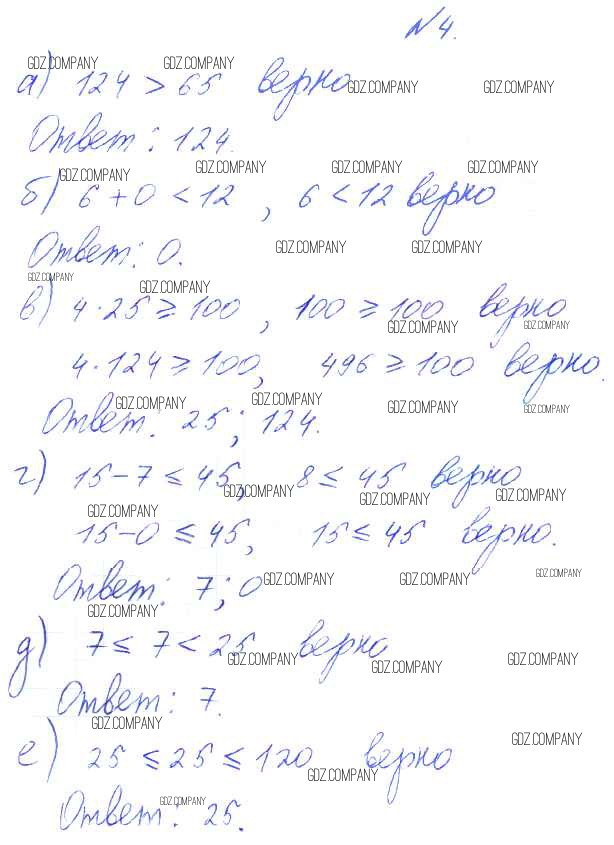 № 4.
GDZ.COMPANY GDZ.COMPANY
а) 124 > 65 верно GDZ.COMPANY GDZ.COMPANY
Ответ: 124.
GDZ.COMPANY GDZ.COMPANY GDZ.COMPANY GDZ.COMPANY
б) 6 + 0 < 12 , 6 < 12 верно
Ответ: 0. GDZ.COMPANY GDZ.COMPANY
GDZ.COMPANY GDZ.COMPANY
в) 4 · 25 ≥ 100 , 100 ≥ 100 верно
GDZ.COMPANY GDZ.COMPANY
4 · 124 ≥ 100, 496 ≥ 100 верно.
GDZ.COMPANY GDZ.COMPANY GDZ.COMPANY GDZ.COMPANY
Ответ: 25; 124.
г) 15 - 7 ≤ 45, 8 ≤ 45 верно
GDZ.COMPANY GDZ.COMPANY GDZ.COMPANY
GDZ.COMPANY
15 - 0 ≤ 45, 15 ≤ 45 верно.
GDZ.COMPANY GDZ.COMPANY GDZ.COMPANY
Ответ: 7; 0
GDZ.COMPANY
д) 7 ≤ 7 < 25 верно
GDZ.COMPANY GDZ.COMPANY GDZ.COMPANY
Ответ: 7.
GDZ.COMPANY GDZ.COMPANY
е) 25 ≤ 25 ≤ 120 верно
GDZ.COMPANY
GDZ.COMPANY
Ответ: 25.